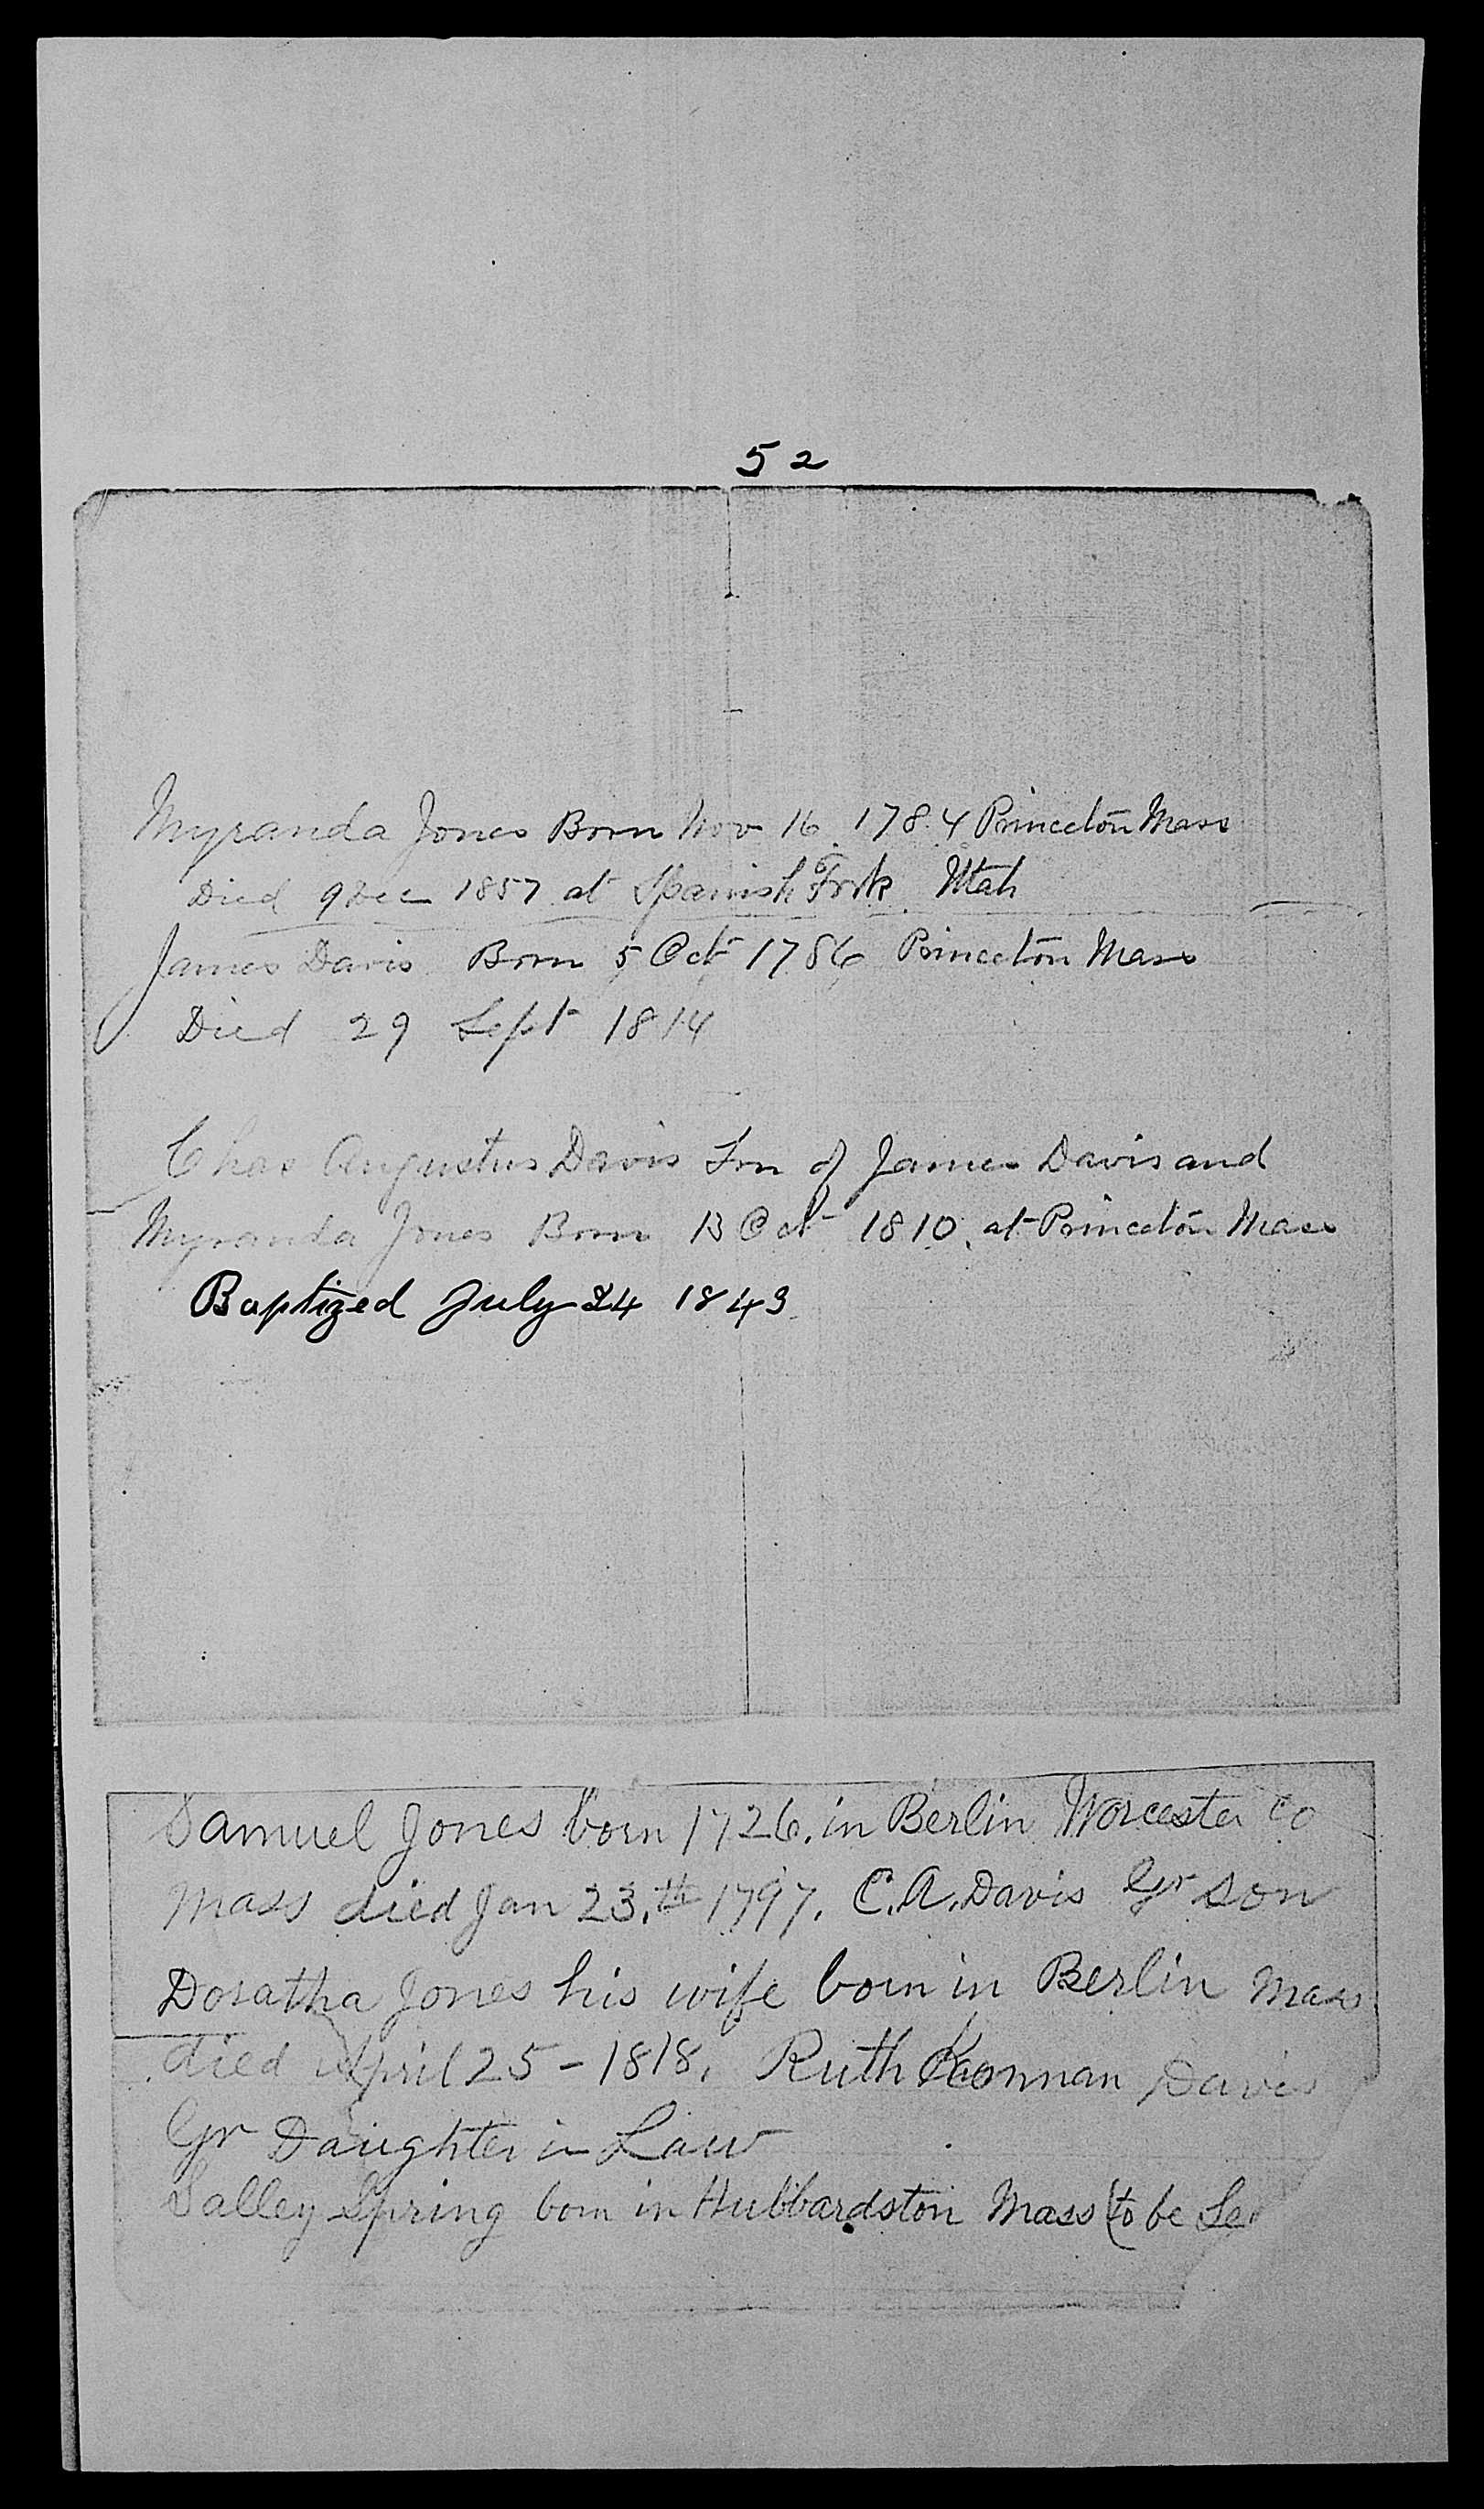 52
Myranda Jones Born Nov 16 1784 Princeton Mass
Died 9 Dec 1857 at Spanish Fork Utah
James Davis Born 5 Oct 1786 Princeton Mass
Died 29 Sept 1814
Chas Augustus Davis Son of James Davis and
Myranda Jones Born 13 Oct 1810. at Princeton Mass
Baptized July 24 1843
Samuel Jones born 1726. in Berlin Worcester Co
Mass died Jan 23.th 1797. C. A. Davis Gr son
Doratha Jones his wife born in Berlin Mass
died April 25 - 1818. Ruth Davis
Gr Daughter in Law
Salley Spring born in Hubbardston Mass (to be